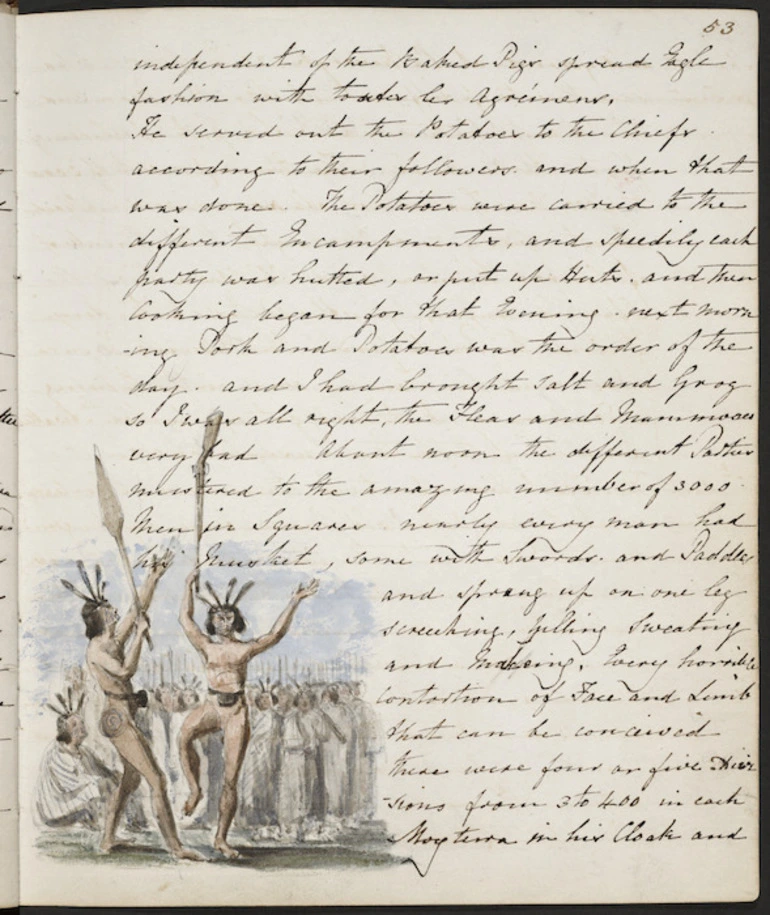 53
independent of the Baked Pigs spread Eagle
fashion with toutes les Agrémens.
He served out the Potatoes to the Chiefs
according to their followers. and when that
was done. The Potatoes were carried to the
different Encampments, and speedily each
party was hutted, or put up Huts. and then
Cooking began for that Evening. next morn
-ing Pork and Potatoes was the order of the
day. and I had brought salt and Grog
so I was all right, the Fleas and
very bad About noon the different Parties
mustered to the amazing number of 3000
Men in Squares nearly every man had
his Musket, some with Swords. and Paddles
and sprung up on one leg
screeching, yelling Sweating
and Making. Every horrible
contortion of Face and Limb
that can be conceived
there were four or five Divi
-sions from 3 to 400 in each
in his Cloak and